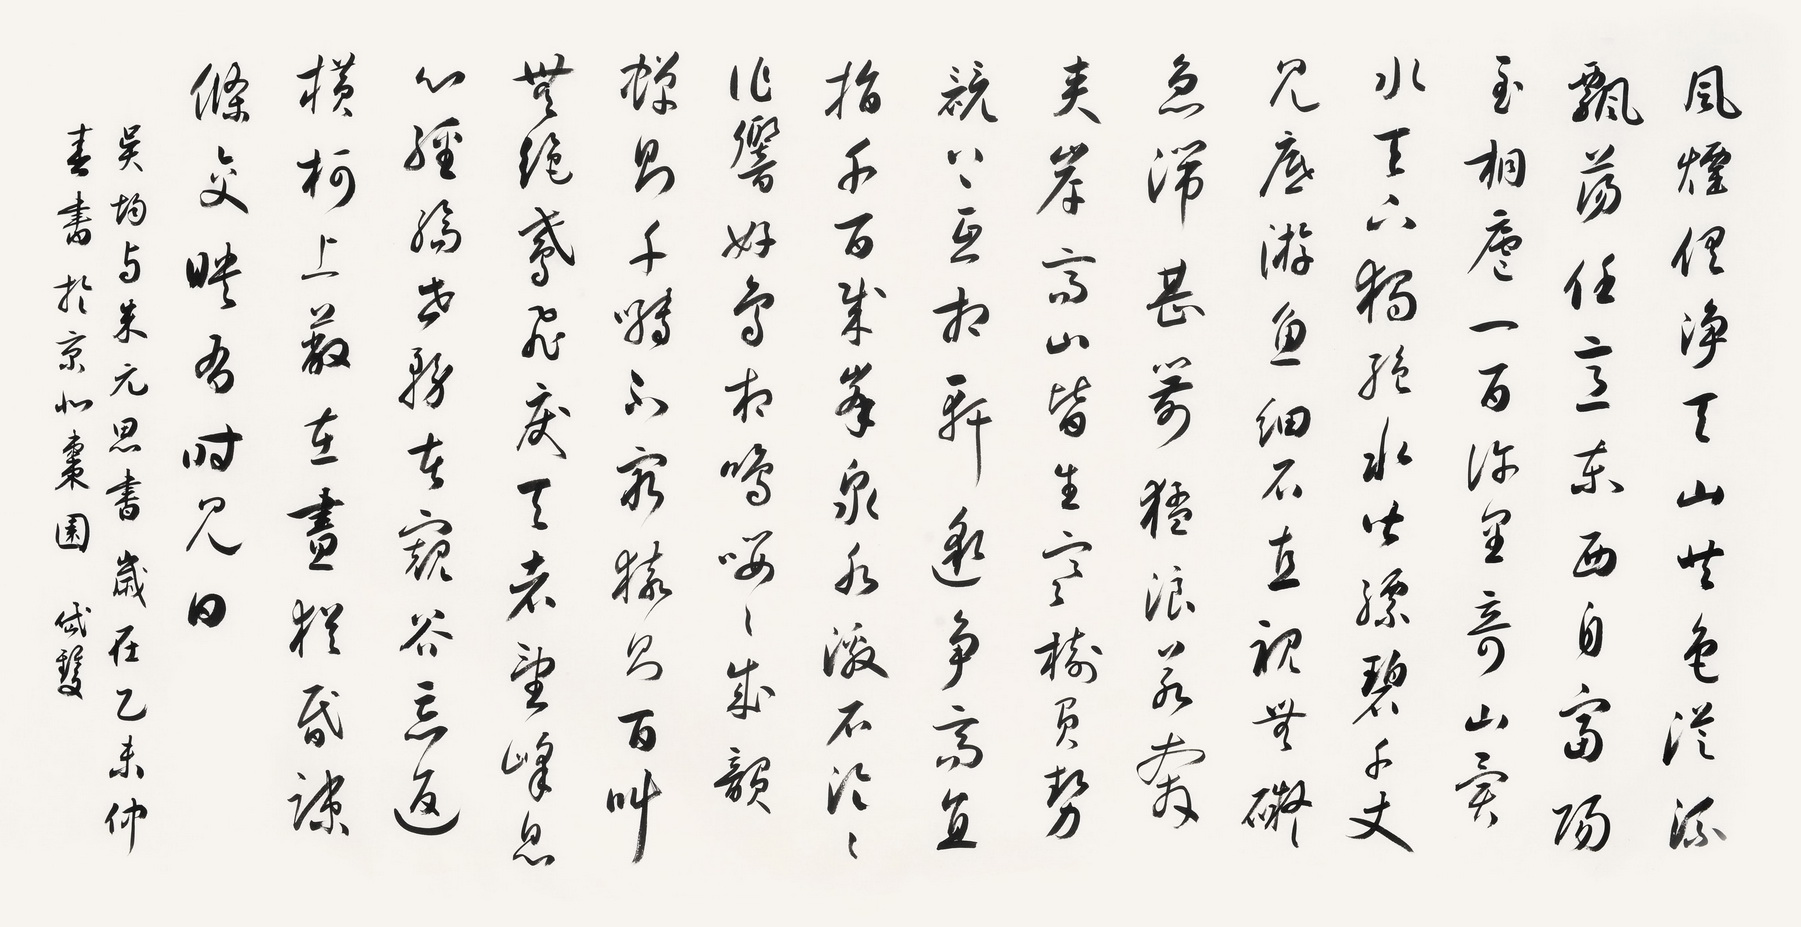 風煙俱淨天山共色從流
飄蕩任意東西自富陽
至桐廬一百許里奇山異
水天下獨絕水皆縹碧千丈
見底游魚細石直視無礙
急湍甚箭猛浪若奔
夾岸高山皆生寒樹負勢
競上互相軒邈爭高直
指千百成峯泉水激石泠〻
作響好鳥相鳴嚶〻成韻
蟬則千囀不窮猿則百叫
無絕鳶飛戾天者望峰息
心經綸世務者窺谷忘返
橫柯上蔽在晝猶昏疎
條交映有時見日
吳均與朱元思書 歲在乙未仲
春書於京北棗園